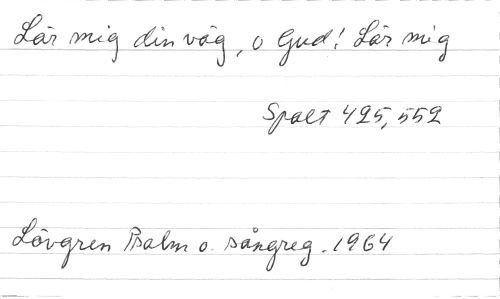 Lär mig din väg, o Gud! Lär mig
Spalt 425, 552
Lövgren Psalm o. sångreg. 1964